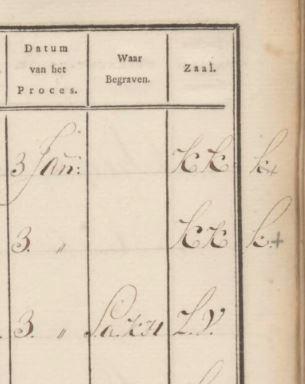 Datum
van het
Proces.
Waar
Begraven.
Zaal.
3 Jan: KK k+
3. " KK k.+
3. " L.V.